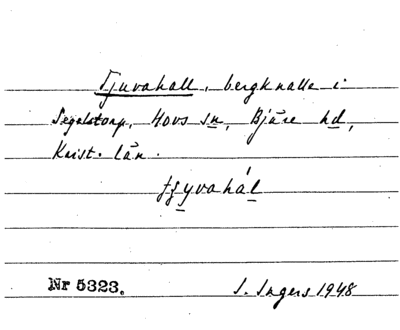 Tjuvahall, bergknalle i
Segelstorp, Hovs sn, Bjäre hd,
Krist. län.
Nr 5323. I. Ingers 1948